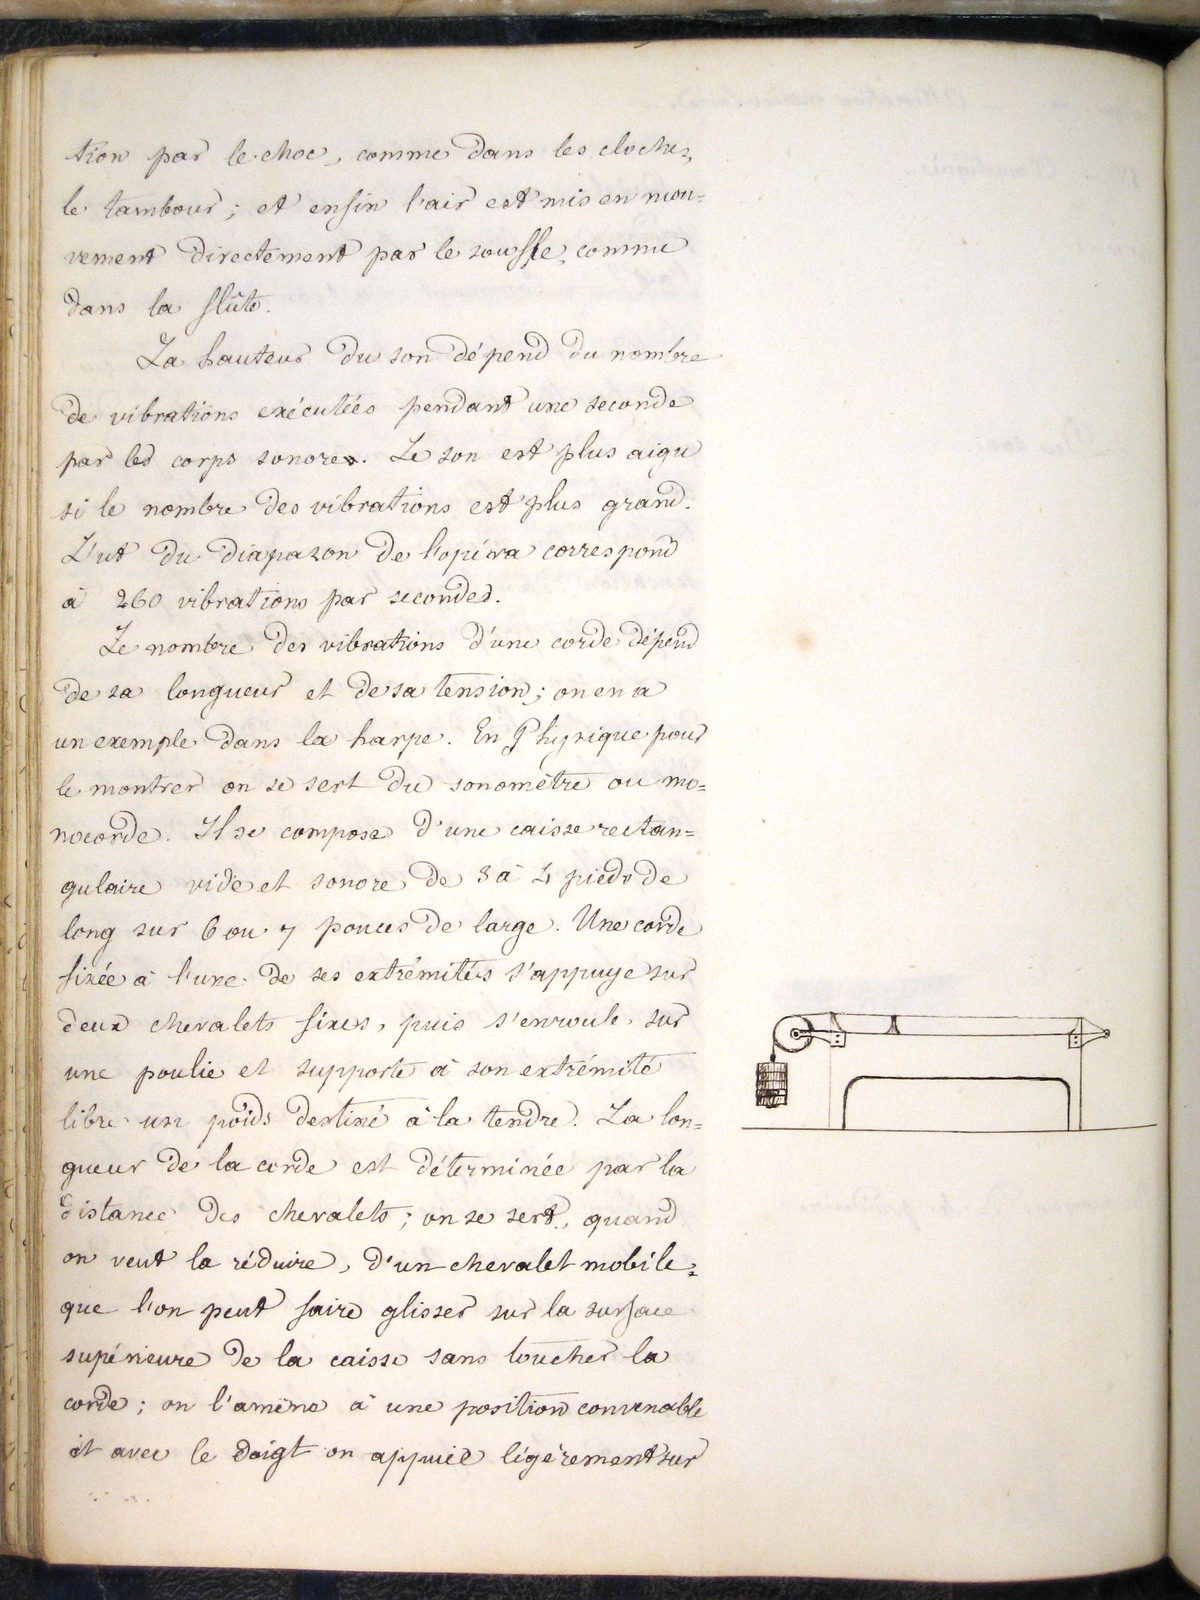 tion par le choc, comme dans les cloches,
le tambour; et enfin l'air est mis en mou=
vement directement par le souffle, comme
dans la flûte.
La hauteur du son dépend du nombre
de vibrations exécutées pendant une seconde
par les corps sonores. Le son est plus aigu
si le nombre des vibrations est plus grand.
L'ut du diapazon de l'opéra correspond
à 260 vibrations par secondes.
Le nombre des vibrations d'une corde dépend
de sa longueur et de sa tension; on en a
un exemple dans la harpe. En Physique pour
le montrer on se sert du sonomètre ou mo=
nocorde. Il se compose d'une caisse rectan=
gulaire vide et sonore de 3 à 4 pieds de
long sur 6 ou 7 pouces de large. Une corde
fixée à l'une de ses extrémités s'appuye sur
deux chevalets fixes, puis s'enroule sur
une poulie et supporte à son extrémité
libre un poids destiné à la tendre. La lon=
gueur de la corde est déterminée par la
distance des chevalets; on se sert, quand
on veut la réduire, d'un chevalet mobile
que l'on peut faire glisser sur la surface
supérieure de la caisse sans toucher la
corde; on l'amène à une position convenable
et avec le doigt on appuie légèrement sur